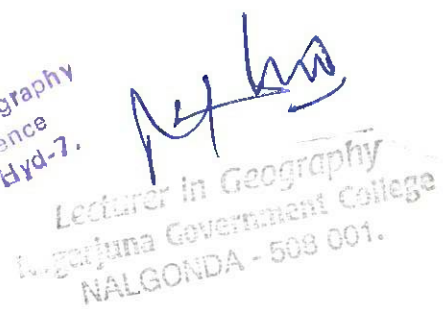 graphy
ence
Hyd-7.
Lecturer in Geography
Nagarjuna Government College
NALGONDA - 508 001.